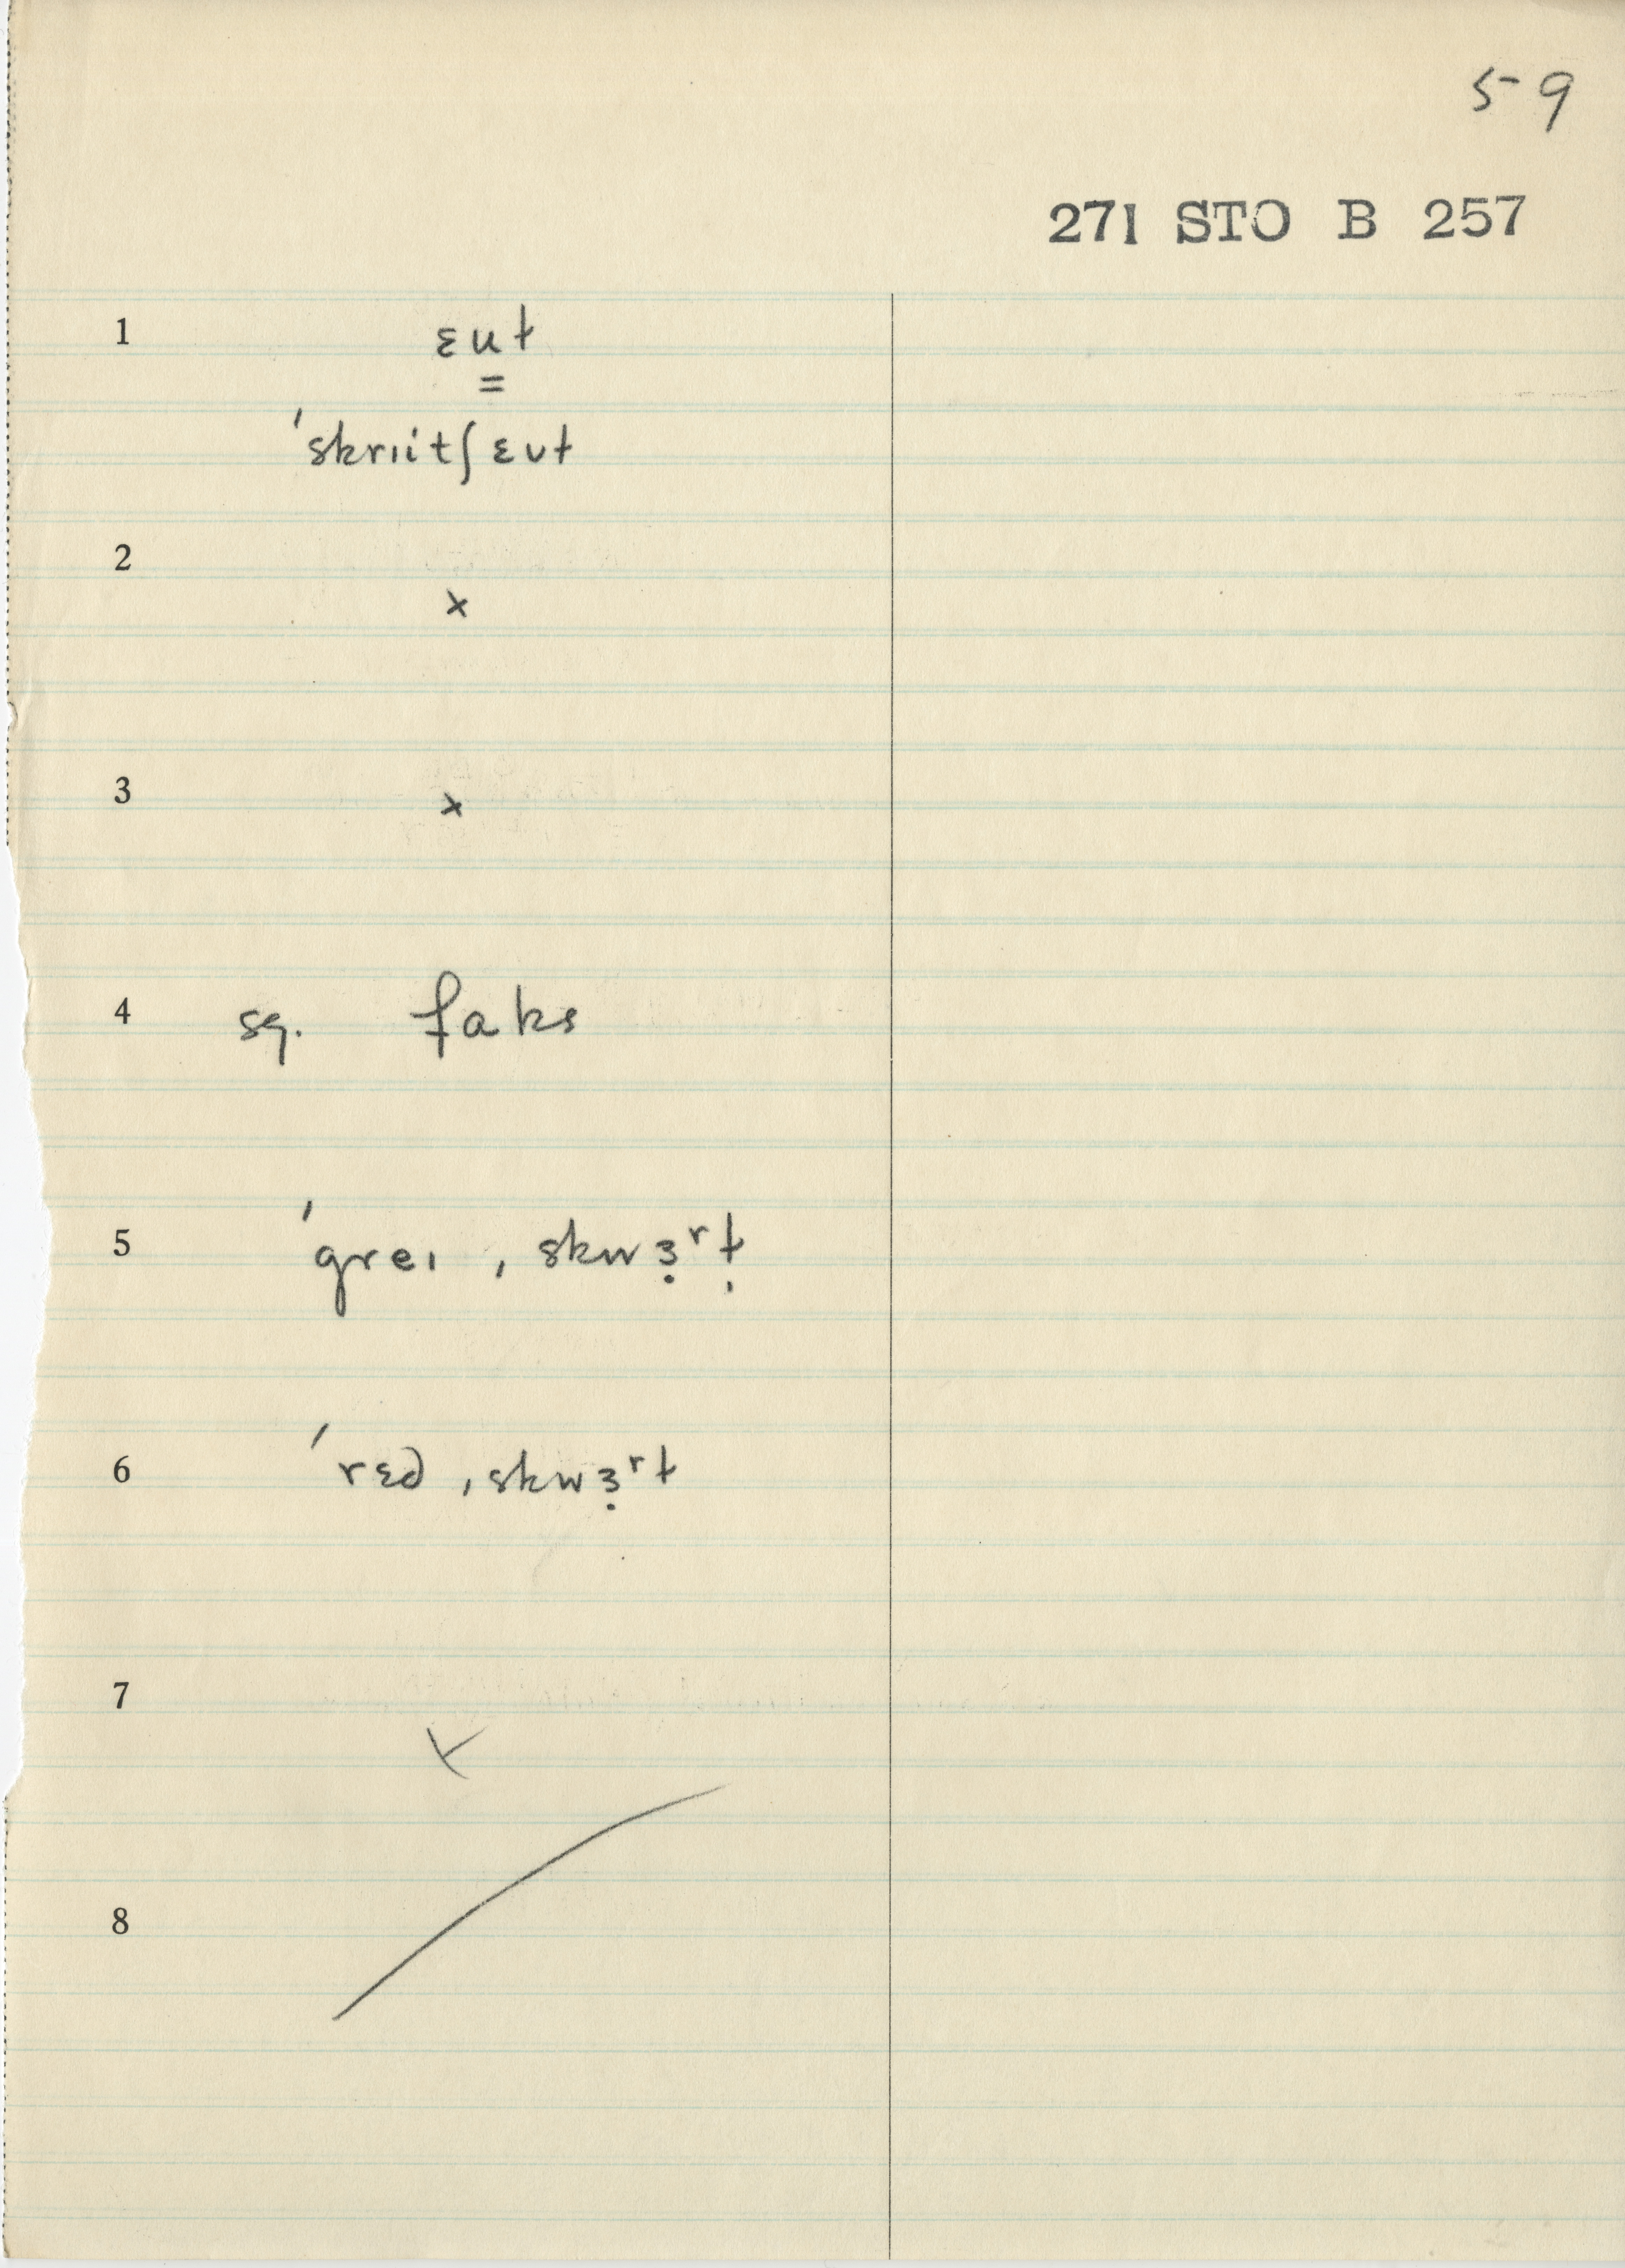 59
271 STO B 257
1 ɛuɫ
=
ˈskrɪitʃɛʊɫ
2
x
3 x
4 sg. faks
5 ˈgreɪ ˌskwɜ̣ʳɫ̩
6 ˈrɛd ˌskwɜ̣ʳɫ
7
x
8